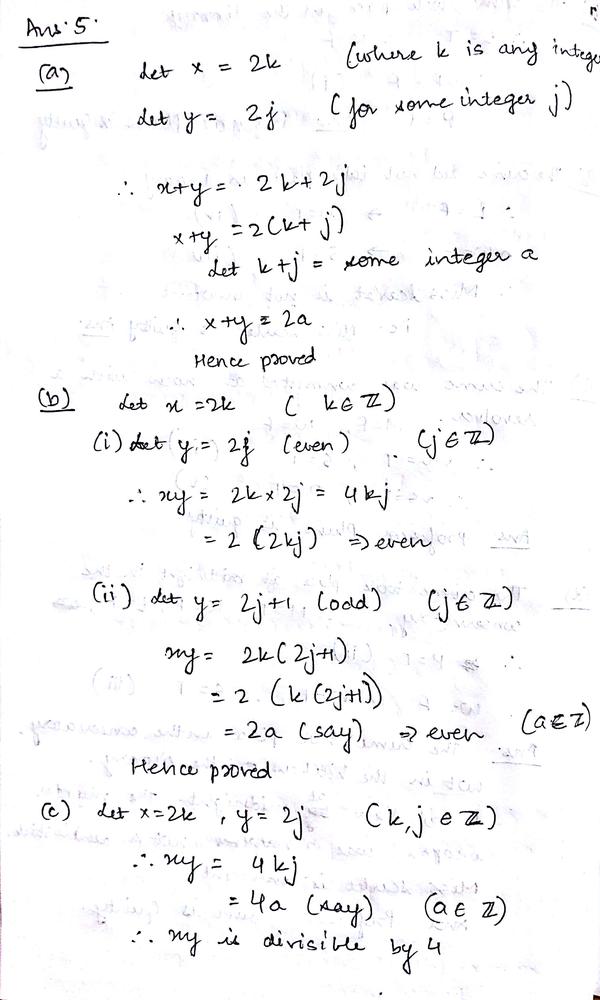 Ans: 5.
(a) Let x = 2k (where k is any intege
Let y = 2j (for some integer j)
∴ x+y = 2k+2j
x+y = 2(k+j)
Let k+j = some integer a
∴ x+y = 2a
Hence proved
(b) Let x = 2k ( k∈ℤ)
(i) Let y = 2j (even) (j∈ℤ)
∴ xy = 2k×2j = 4kj
= 2 (2kj) ⇒ even
(ii) Let y = 2j+1 (odd) (j∈ℤ)
xy = 2k(2j+1)
= 2 (k(2j+1))
= 2a (say) ⇒ even (a∈ℤ)
Hence proved
(c) Let x=2k , y = 2j (k,j ∈ ℤ)
∴ xy = 4kj
= 4a (say) (a∈ ℤ)
∴ xy is divisible by 4